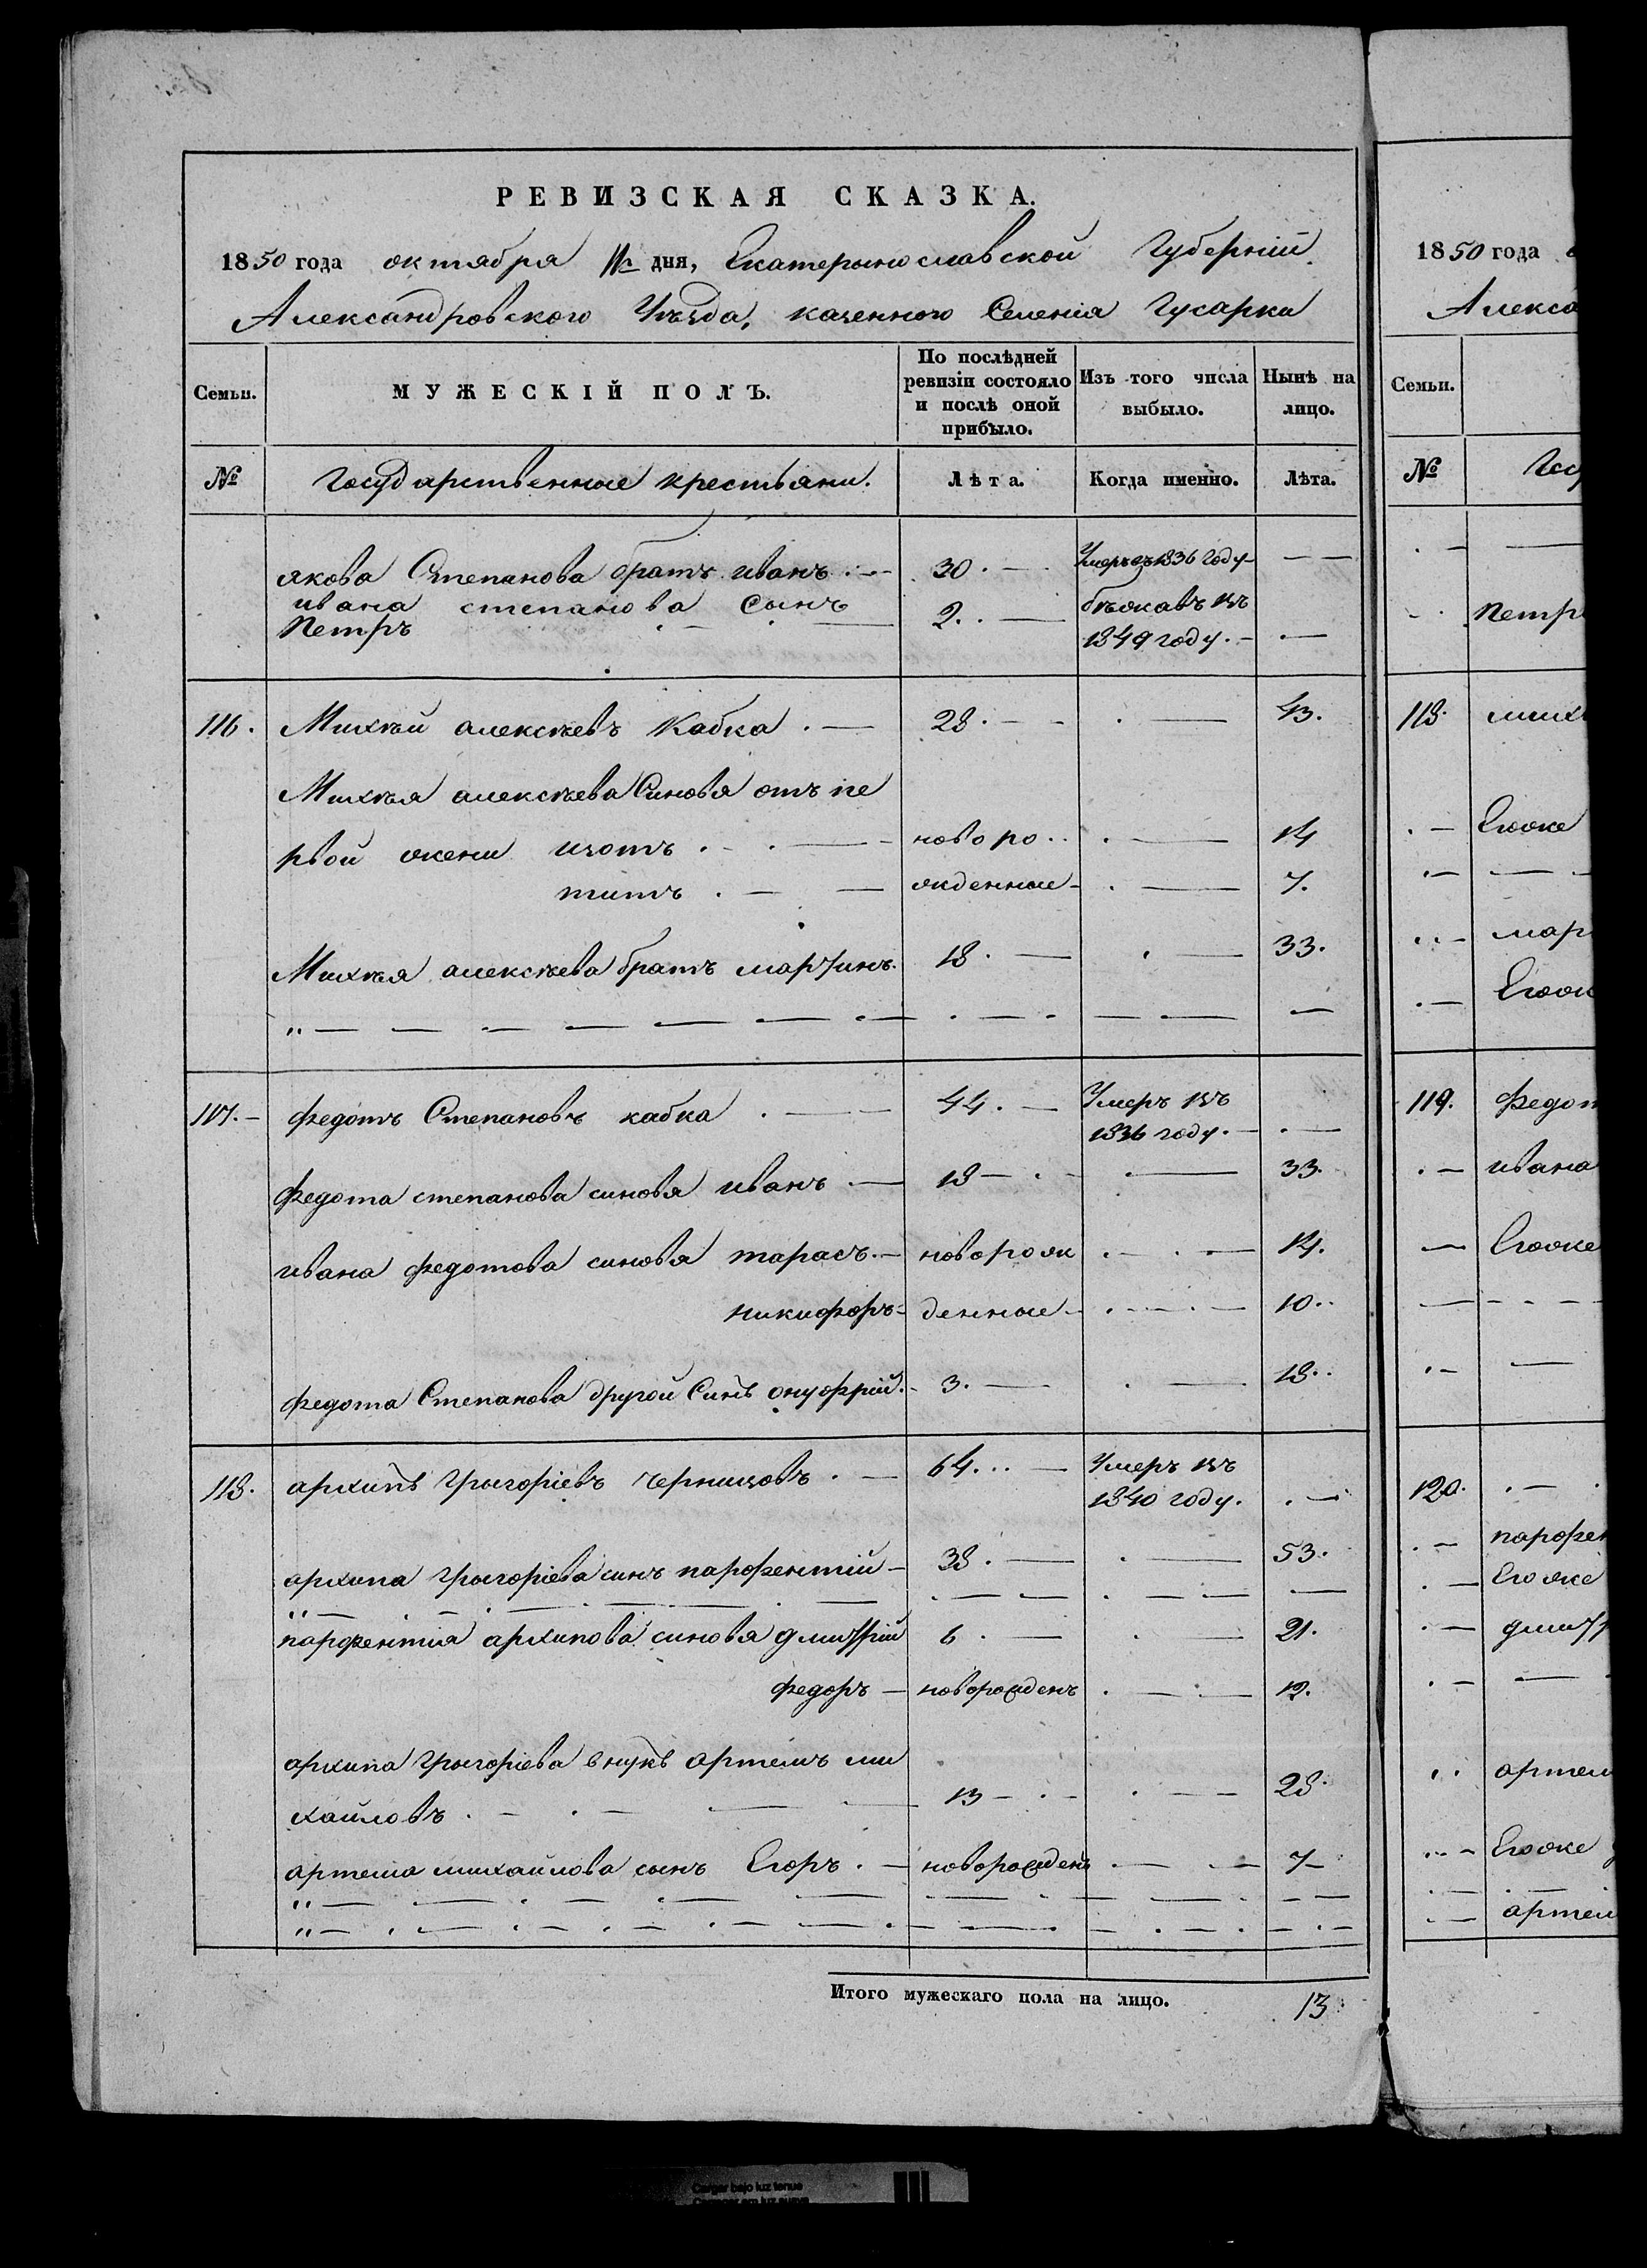 РЕВИЗСКАЯ СКАЗКА.
1850 года октября 11го дня, Екатериынославской Губерніи
Александровского Уѣзда, казенного Селенія Гусарки
Семьи. МУЖЕСКІЙ ПОЛЪ. По послѣдней ревизіи состояло и послѣ оной прибыло. Изъ того числа выбыло. Нынѣ на лицо.
№ Государственные крестьяни. Лѣта. Когда именно. Лѣта.
якова Степанова братъ иванъ 30. Умеръ въ 1836 году
ивана степанова Сынъ 2. бѣжавъ въ
Петръ 1849 году.
116. Михѣй алексѣевъ Кабка 28. 43.
Михѣя алексѣева Синовя отъ пе
рвой жени изотъ новоро 14
титъ жденные 7.
Михѣя алексѣева братъ мартинъ. 18. 33.
117. Федотъ Степановъ кабка 44. Умеръ въ
1836 году.
Федота степанова синовя иванъ 18 33.
ивана федотова синовя тарасъ новорож 14.
никифоръ денные 10.
Федота Степанова другой Синъ онуфрій. 3. 18.
118. архипъ Григоріевъ черницовъ 64. Умеръ въ
1840 году.
архипа Григоріева синъ парфентій 38. 53.
парфентія архипова синовя дмитрій 6 21.
федоръ новорожденъ 12.
архипа Григоріева внукъ артемъ ми
хайловъ 13 28.
артема михайлова сынъ Егоръ новорожденъ 7
Итого мужескаго пола на лицо. 13
1850 года
Алекса
Семьи.
№ Гос
Петр
118. мих
Егоже
мар
Егож
119. Федот
ивана
Егоже
120.
парфен
Егоже
дмит
артем
Егоже
артем